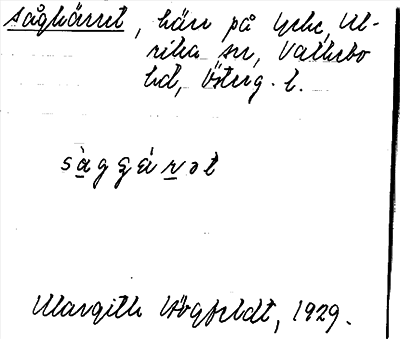 Sågkärret, kärr på Yrke, Ul-
rika sn, Valkebo
hd, Österg. l.
sàggárət
Margith Högfeldt, 1929.